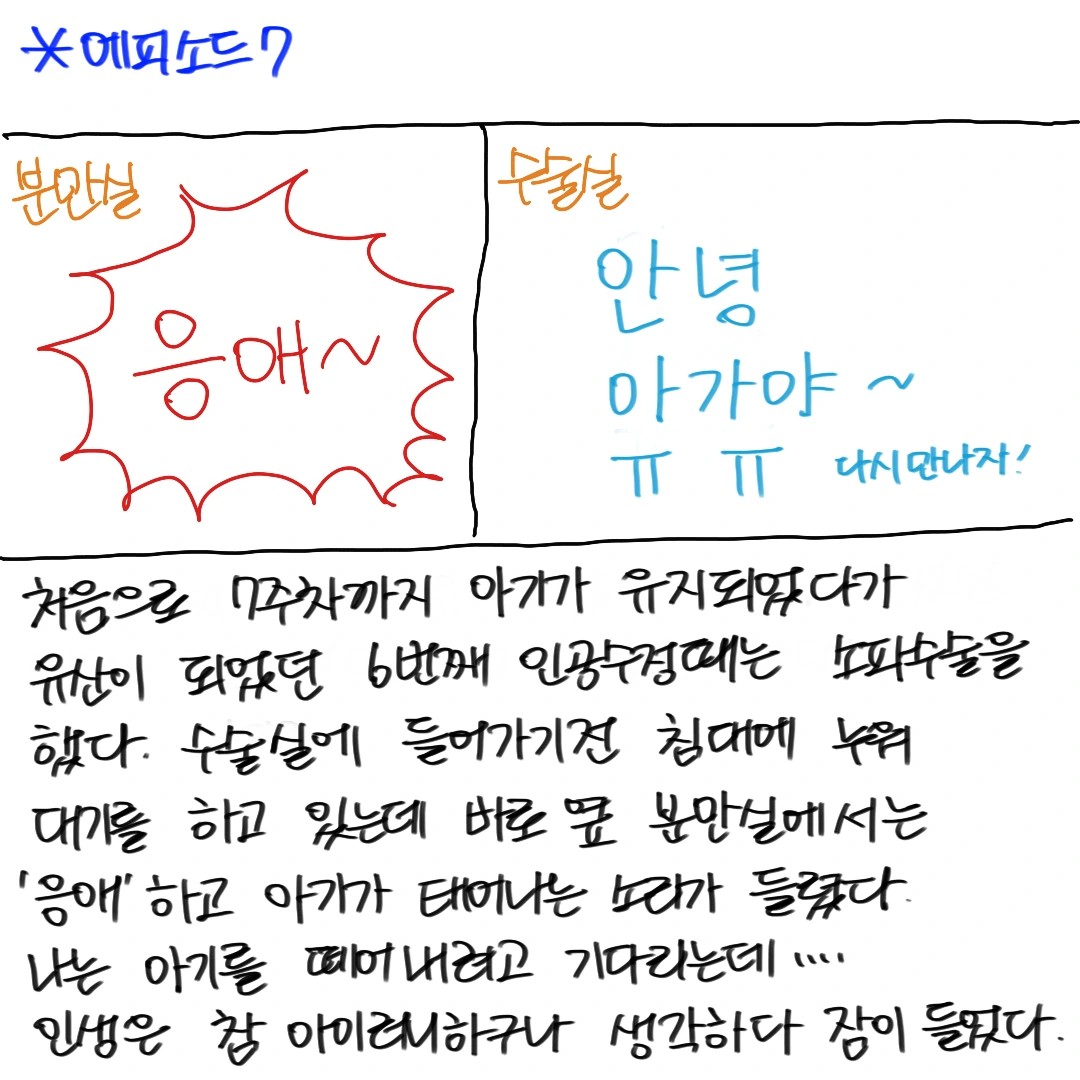 *에피소드7
분만실
응애~
수술실
안녕
아가야~
ㅠㅠ 다시만나자!
처음으로 7주차까지 아기가 유지되었다가
유산이 되었던 6번째 인공수정때는 소파수술을
했다. 수술실에 들어가기전 침대에 누워
대기를 하고 있는데 바로 옆 분만실에서는
'응애' 하고 아기가 태어나는 소리가 들렸다.
나는 아기를 떼어내려고 기다리는데....
인생은 참 아이러니하구나 생각하다 잠이 들었다.